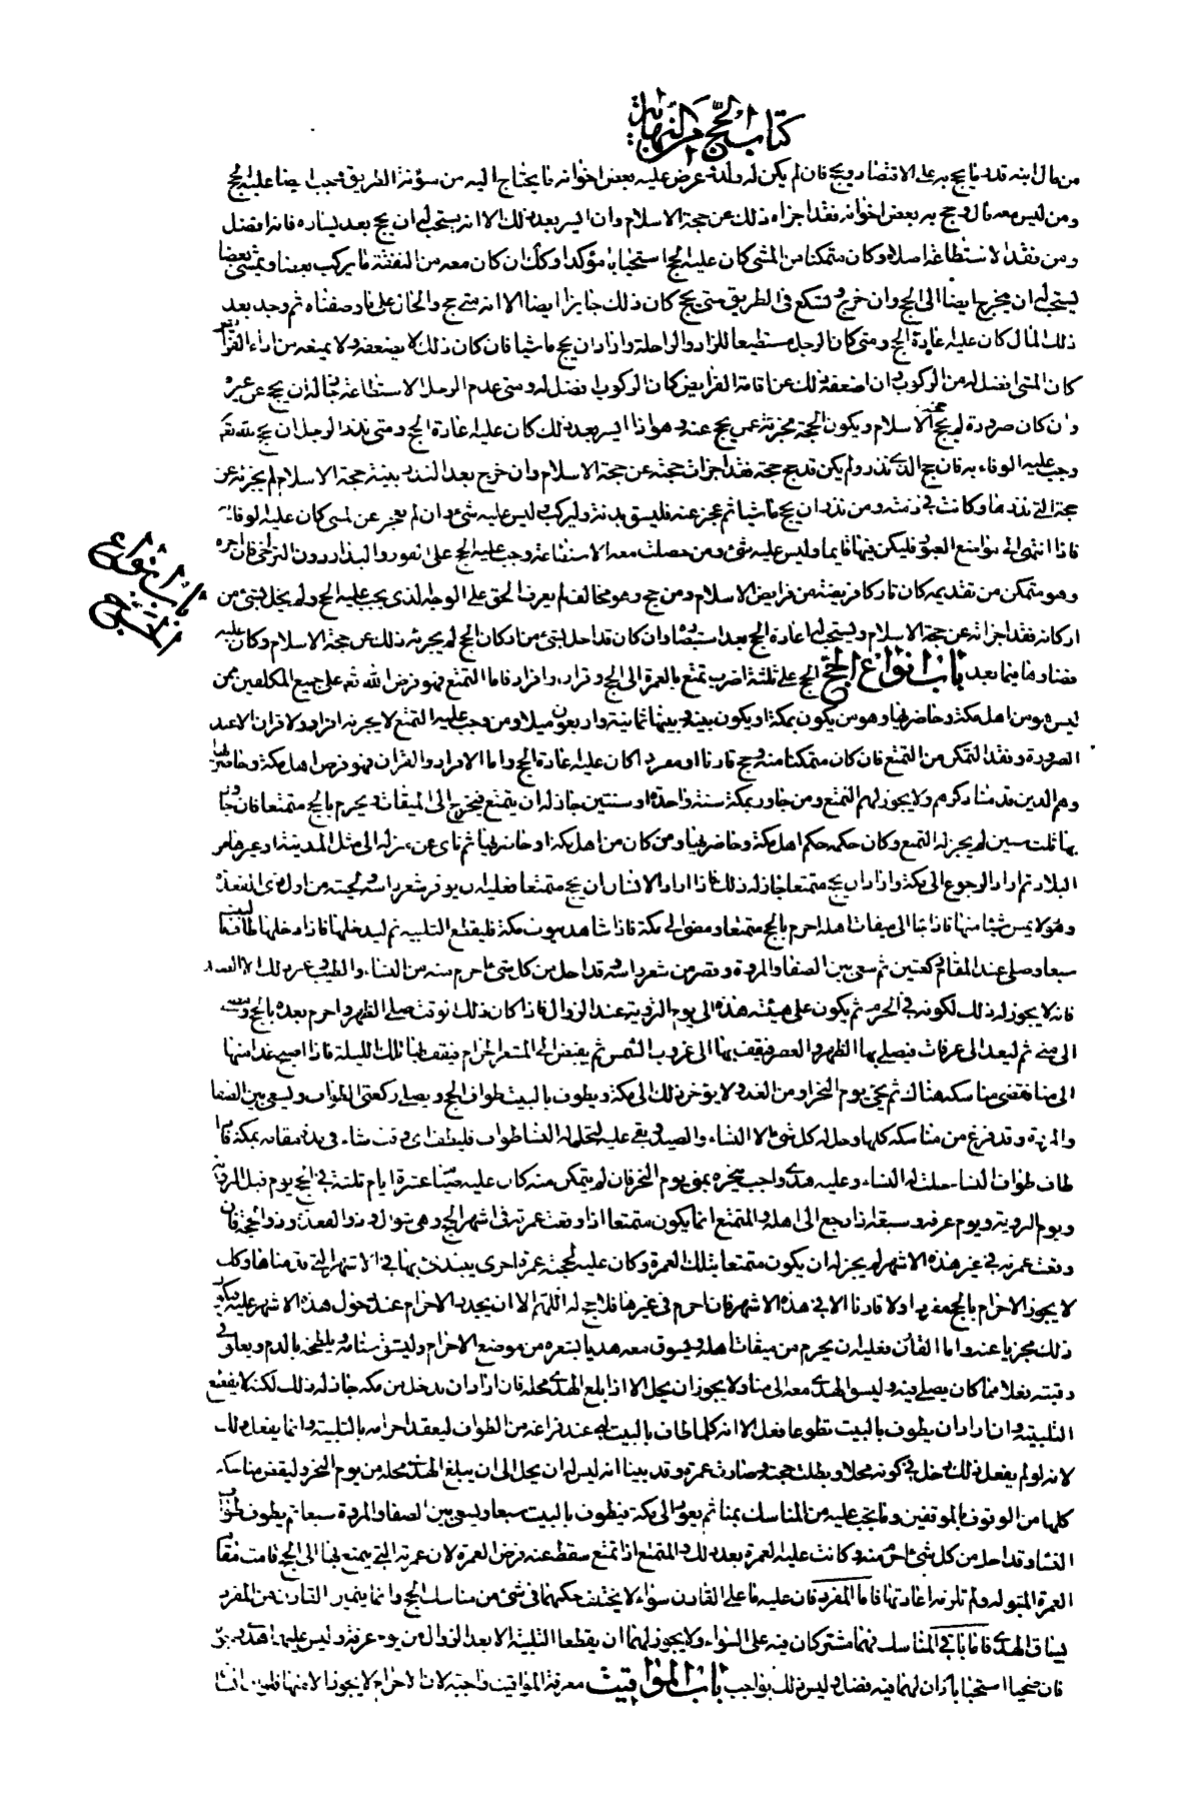 كتاب الحج من النهاية
من مال ابنه قدر ما يحج به على الاقتصاد ويحج فان لم يكن له ولد وعرض عليه بعض اخوانه ما يحتاج اليه من مؤنة الطريق وجب ايضا عليه الحج
ومن ليس معه مال وحج به بعض اخوانه فقد اجزاه ذلك عن حجة الاسلام وان ايسر بعد ذلك الا انه يستحب له ان يحج بعد يساره فانه افضل
ومن فقد الاستطاعة اصلا وكان متمكنا من المشى كان عليه الحج استحبابا مؤكدا وكذلك ان كان معه من النفقة ما يركب بعضا ويمشى بعضا
يستحب له ان يخرج ايضا الى الحج وان خرج وتسكع فى الطريق حتى يحج كان ذلك جايزا ايضا الا انه متى حج والحال على ما وصفناه ثم وجد بعد
ذلك المال كان عليه اعادة الحج ومتى كان الرجل مستطيعا للزاد والراحلة واراد ان يحج ماشيا فان كان ذلك لا يضعفه ولا يمنعه من اداء الفرايض
كان المشى افضل له من الركوب وان اضعفه ذلك عن اقامة الفرايض كان الركوب افضل له ومتى عدم الرجل الاستطاعة جاز له ان يحج عن غيره
وان كان صرورة لم يحج حجة الاسلام ويكون الحجة مجزئة عمن يحج عنه وهو اذا ايسر بعد ذلك كان عليه اعادة الحج ومتى نذر الرجل ان يحج لله تعالى
وجب عليه الوفاء به فان حج الذى نذر ولم يكن قد حج حجة الاسلام فقد اجزأت حجته عن حجة الاسلام وان خرج بعد النذر بنية حجة الاسلام لم يجزئه عن
حجة التى نذرها وكانت فى ذمته ومن نذر ان يحج ماشيا ثم عجز عنه فليسق بدنة وليركب وليس عليه شئ وان لم يعجز عن المشى كان عليه الوفاء به
فاذا انتهى الى مواضع العبور فليكن فيها قايما وليس عليه شئ ومن حصلت معه الاستطاعة وجب عليه الحج على الفور والبدار دون التراخى فان اخره
وهو متمكن من تقديمه كان تاركا فريضة من فرايض الاسلام ومن حج وهو مخالف لم يعرف الحق على الوجه الذى يجب عليه الحج ولم يخل بشئ من
اركانه فقد اجزأته عن حجة الاسلام ويستحب له اعادة الحج بعد استبصاره وان كان قد اخل بشئ من اركان الحج لم يجزئه ذلك عن حجة الاسلام وكان عليه
قضاؤها فيما بعد باب انواع الحج الحج على ثلثة اضرب تمتع بالعمرة الى الحج وقران وافراد فاما التمتع فهو فرض الله تعالى على جميع المكلفين ممن
ليس هو من اهل مكة وحاضريها وهو من يكون بمكة او يكون بينه وبينها ثمانية واربعون ميلا ومن وجب عليه التمتع لا يجزئه افراد ولا قران الا عند
الضرورة وفقد التمكن من التمتع فان كان متمكنا منه وحج قارنا او مفردا كان عليه اعادة الحج واما الافراد والقران فهو فرض اهل مكة وحاضريها
وهم الذين قدمنا ذكرهم ولا يجوز لهم التمتع ومن جاور بمكة سنة واحدة او سنتين جاز له ان يتمتع فيخرج الى الميقات ويحرم بالحج متمتعا فان جاور
بها ثلث سنين لم يجز له التمتع وكان حكمه حكم اهل مكة وحاضريها ومن كان من اهل مكة او حاضريها ثم ناى عن منزله الى مثل المدينة او غيرها من
البلاد ثم اراد الرجوع الى مكة واراد ان يحج متمتعا جاز له ذلك فاذا اراد الانسان ان يحج متمتعا فعليه ان يوفر شعر راسه ولحيته من اول ذى القعدة
ولا يمس شيئا منها فاذا جاء الى ميقات اهله احرم بالحج متمتعا ومضى الى مكة فاذا شاهد بيوت مكة فليقطع التلبية ثم ليدخلها فاذا دخلها طاف بالبيت
سبعا وصلى عند المقام ركعتين ثم سعى بين الصفا والمروة وقصر من شعر راسه وقد احل من كل شئ احرم منه من النساء والطيب وغير ذلك الا الصيد
فانه لا يجوز له ذلك لكونه فى الحرم ثم يكون على هيئته هذه الى يوم التروية عند الزوال فاذا كان ذلك الوقت صلى الظهر واحرم بعده بالحج ومضى
الى منى ثم ليغد الى عرفات فيصلى بها الظهر والعصر ويقف بها الى غروب الشمس ثم يفيض الى المشعر الحرام فيقف بها تلك الليلة فاذا اصبح غدا منها
الى منا فقضى مناسكه هناك ثم يجئ يوم النحر او من الغد ولا يؤخر ذلك الى مكة ويطوف بالبيت طواف الحج ويصلى ركعتى الطواف ويسعى بين الصفا
والمروة وقد فرغ من مناسكه كلها وحل له كل شئ الا النساء والصيد وبقى عليه لتحلة النساء طواف فليطف اى وقت شاء فى مدة مقامه بمكة فاذا
طاف طواف النساء حلت له النساء وعليه هدى واجب ينحره بمنى يوم النحر فان لم يتمكن منه كان عليه صيام عشرة ايام ثلثة فى الحج يوم قبل التروية
ويوم التروية ويوم عرفة وسبعة اذا رجع الى اهله والمتمتع انما يكون متمتعا اذا وقعت عمرته فى اشهر الحج وهى شوال وذو القعدة وذو الحجة فان
وقعت عمرته فى غير هذه الاشهر لم يجز له ان يكون متمتعا بتلك العمرة وكان عليه لحجته عمرة اخرى يبتدئ بها فى الاشهر التى قدمناها وكذلك
لا يجوز الاحرام بالحج مفردا ولا قارنا الا فى هذه الاشهر فان احرم فى غيرها فلا حج له اللهم الا ان يجدد الاحرام عند دخول هذه الاشهر عليه ويكون
ذلك مجزيا عنه واما القارن فعليه ان يحرم من ميقات اهله ويسوق معه هديا يشعره من موضع الاحرام وليشق سنامه ويلطخه بالدم ويعلق فى
رقبته نعلا مما كان يصلى فيه وليسق الهدى معه الى منا ولا يجوز ان يحل الا اذا بلغ الهدى محله فان اراد ان يدخل من مكة جاز له ذلك لكنه لا يقطع
التلبية وان اراد ان يطوف بالبيت تطوعا فعل الا انه كلما طاف بالبيت لبى عند فراغه من الطواف ليعقد احرامه بالتلبية وانما يفعل ذلك
لانه لو لم يفعل ذلك دخل فى كونه محلا وبطلت حجته وصارت عمرة وقد بينا انه ليس له ان يحل الى ان يبلغ الهدى محله من يوم النحر وليقض مناسكه
كلها من الوقوف بالموقفين وما يجب عليه من المناسك بمنا ثم يعود الى مكة فيطوف بالبيت سبعا ويسعى بين الصفا والمروة سبعا ثم يطوف طواف
النساء وقد احل من كل شئ احرم منه وكانت عليه العمرة بعد ذلك والمتمتع اذا تمتع سقط عنه فرض العمرة لان عمرته التى يتمتع بها الى الحج قامت مقام
العمرة المبتولة ولم تلزمه اعادتها فاما المفرد فان عليه ما على القارن سواء لا يختلف حكمهما فى شئ من مناسك الحج وانما يتميز القارن من المفرد
بسياق الهدى فاما باقى المناسك فهما مشتركان فيه على السواء ولا يجوز لهما ان يقطعا التلبية الا بعد الزوال من يوم عرفة وليس عليهما هدى
فان ضحيا استحبابا كان لهما فيه فضل وليس ذلك بواجب باب المواقيت معرفة المواقيت واجبة لان الاحرام لا يجوز الا منها فلو ان انسانا
باب انواع
الحج